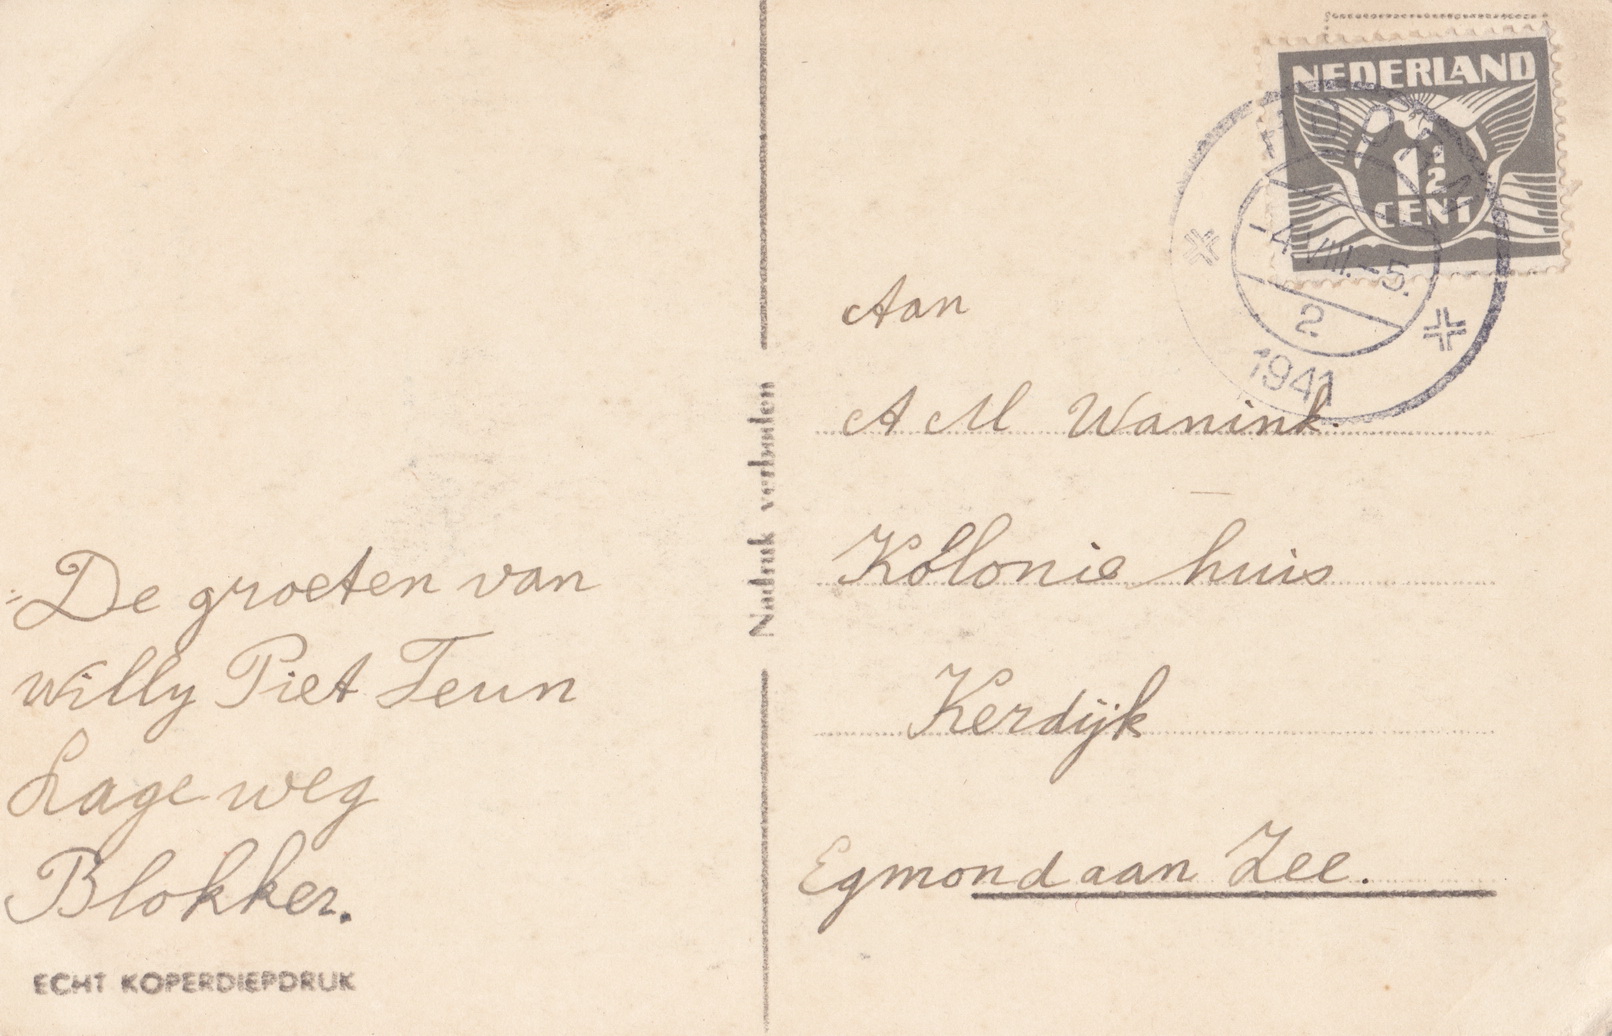 De groeten van
Willy Piet Teun
Lage weg
Blokker.
ECHT KOPERDIEPDRUK
Nadruk verboden
NEDERLAND
1 1/2
CENT
HOORN
-4.VIII.-5.
2
1941
Aan
A M Wanink.
Kollonie huis
Kerdijk
Egmond aan Zee.